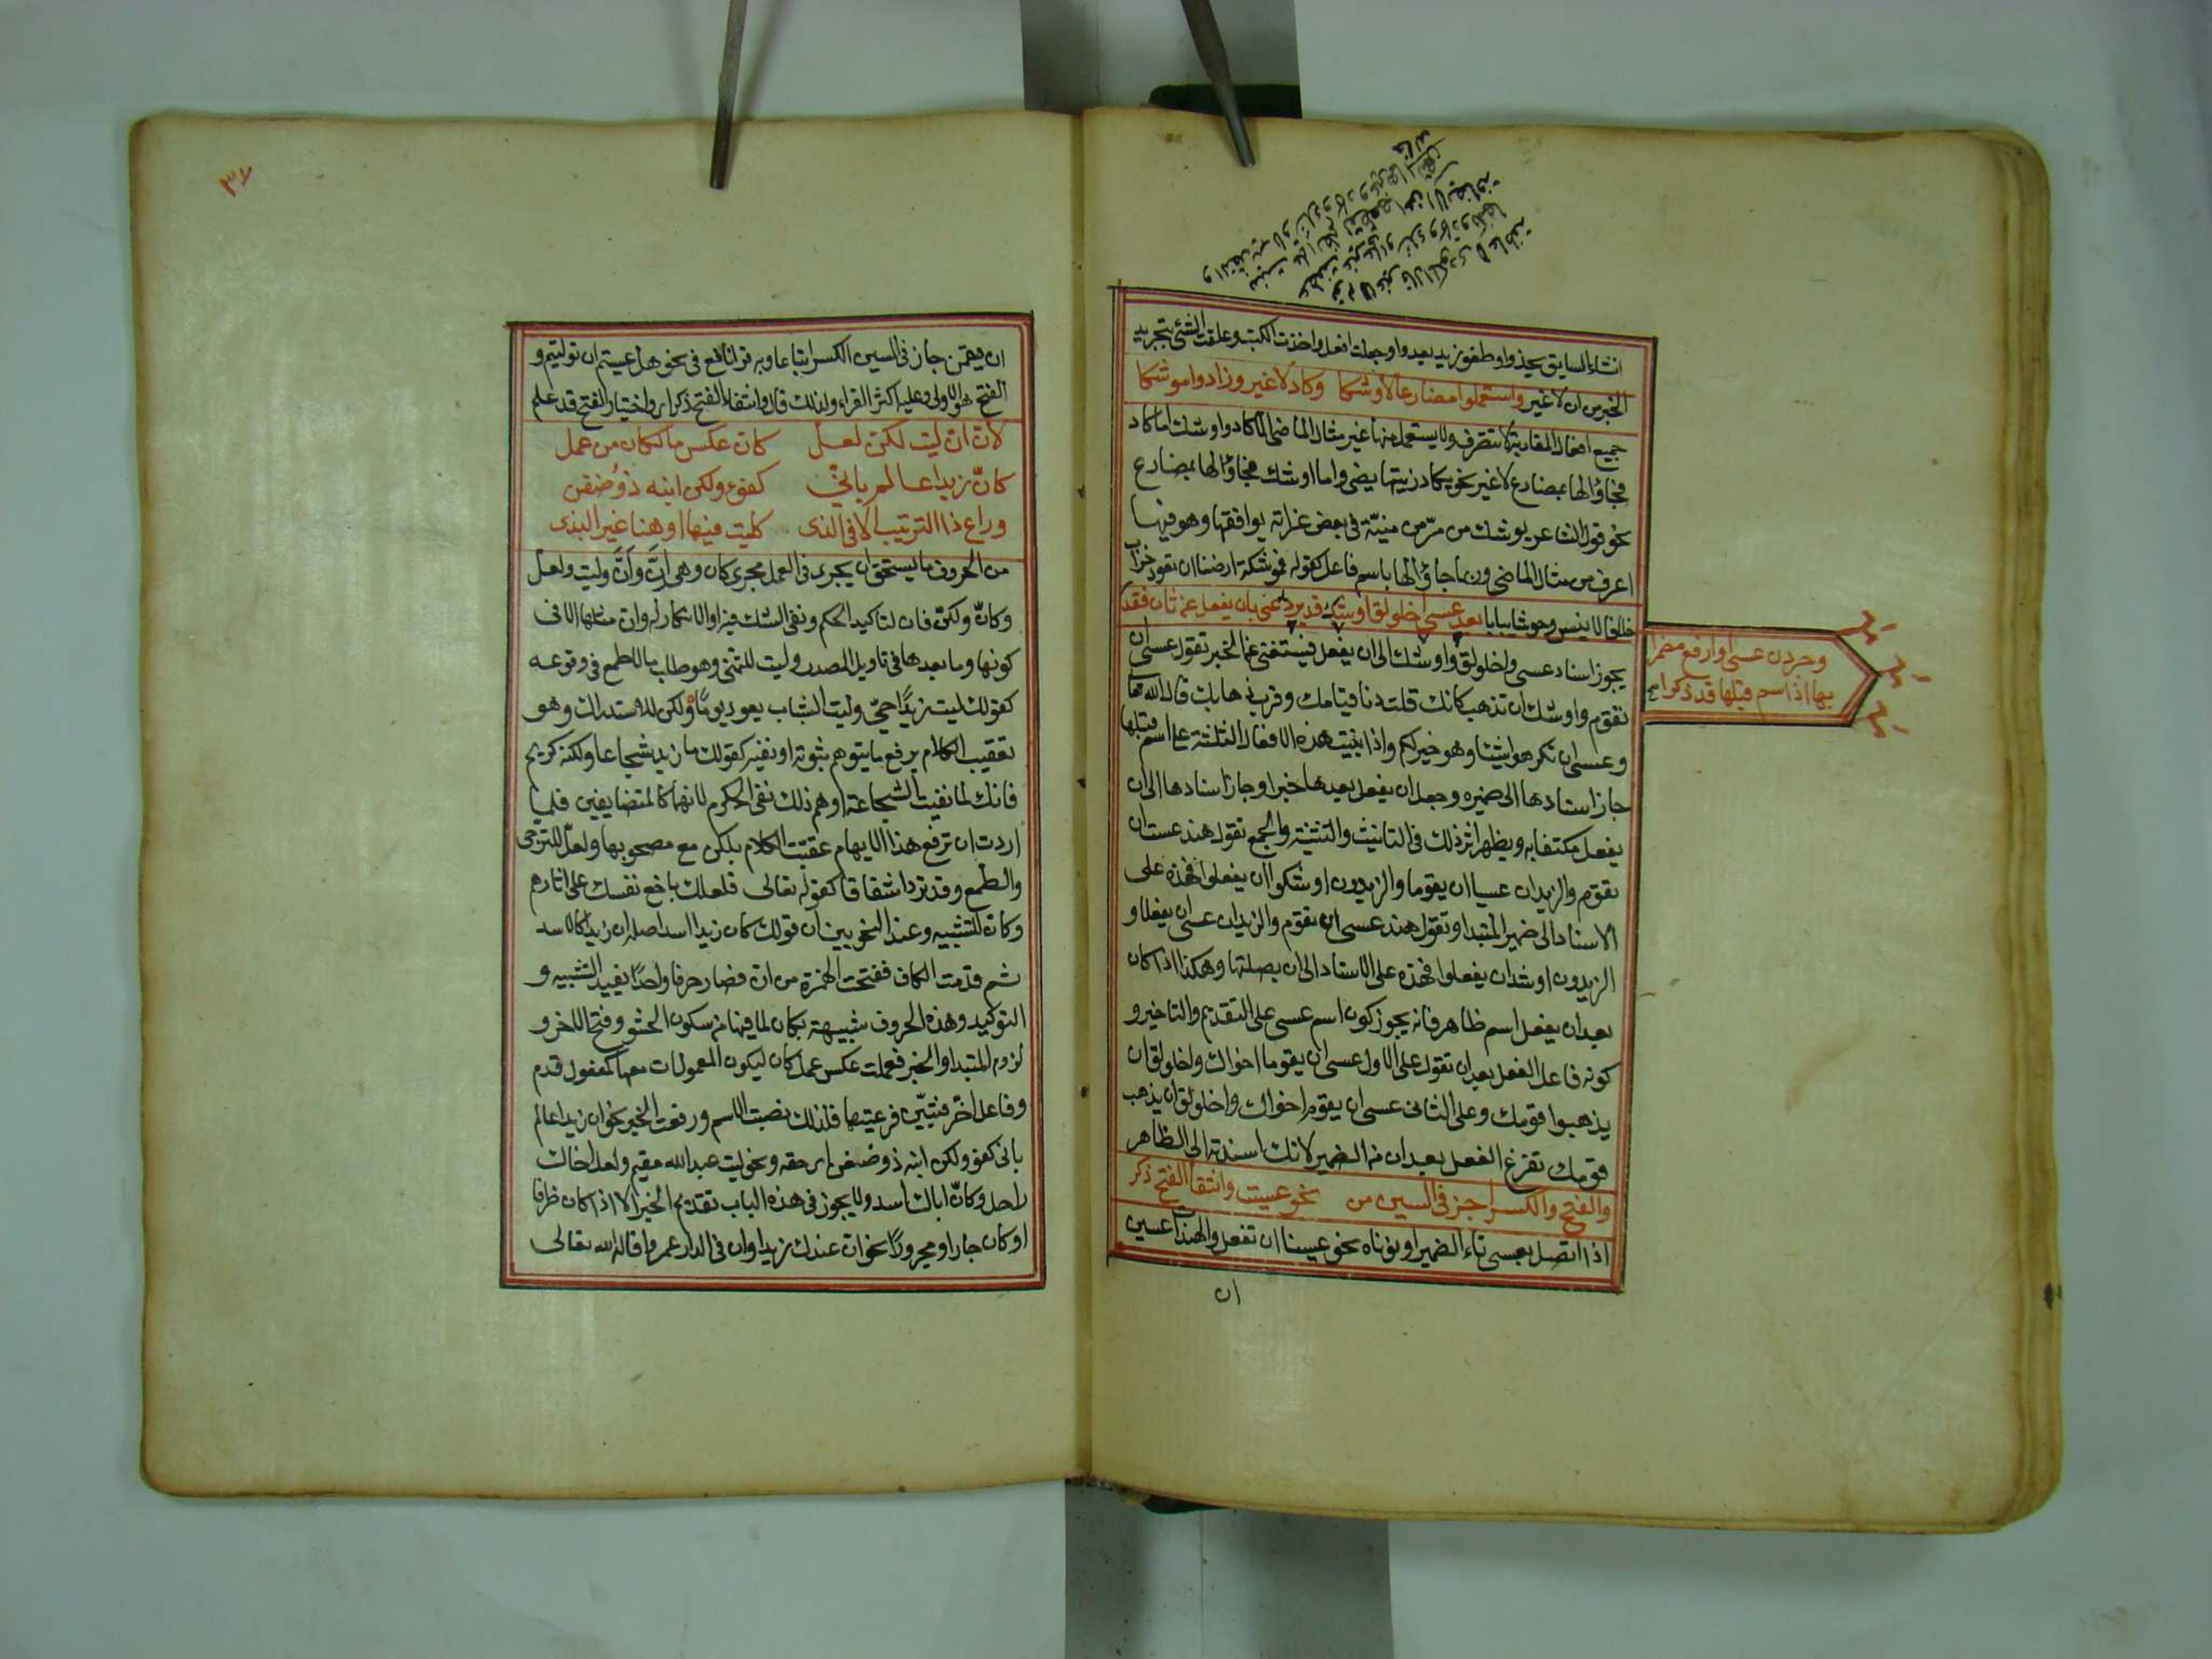 انشاء السايق يحدو وطفق زيد يعدو وجعلت افعل واخذت اكتب وعلقت الشئ بتجريد
الخبر من ان لا غير واستعملوا مضارعا لاوشكا وكاد لا غير وزادوا موشكا
جميع افعال المقاربة لا تتصرف ولا يستعمل منها غير مثال الماضى الا كاد واوشك اما كاد
فجاؤا لها بمضارع لا غير نحو يكاد زيتها يضئ واما اوشك فجاؤا لها بمضارع
نحو قول الشاعر يوشك من فر من منيته فى بعض غراته يوافقها وهو فيها
اعرف من مثال الماضى وربما جاؤا لها باسم فاعل كقوله فموشكة ارضنا ان تعود
خلاف الانيس وحوشا يبابا بعد عسى اخلولق اوشك قد يرد غنى بان يفعل عن ثان فقد
يجوز اسناد عسى واخلولق واوشك الى ان يفعل فيستغنى عن الخبر تقول عسى ان
تقوم واوشك ان تذهب كانك قلت دنا قيامك وقرب ذهابك قال الله تعا
وعسى ان تكرهوا شيئا وهو خير لكم واذا بنيت هذه الافعال الثلثة على اسم قبلها
جاز اسنادها الى ضميره وجعل ان يفعل بعدها خبرا وجاز اسنادها الى ان
يفعل مكتفا به ويظهر اثر ذلك فى التانيث والتثنية والجمع تقول هند عست ان
تقوم والزيدان عسيا ان يقوما والزيدون اوشكوا ان يفعلوا فهذه على
الاسناد الى ضمير المبتدا وتقول هند عسى ان تقوم والزيدان عسى ان يفعلا و
الزيدون اوشك ان يفعلوا فهذه على الاسناد الى ان بصلتها وهكذا اذا كان
بعد ان يفعل اسم ظاهر فانه يجوز كون اسم عسى على التقديم والتاخير و
كونه فاعل الفعل بعد ان تقول على الاول عسى ان يقوما اخواك واخلولق ان
يذهبوا قومك وعلى الثانى عسى ان يقوم اخواك واخلولق ان يذهب
قومك تفرغ الفعل بعد ان من الضمير لانك اسندته الى الظاهر
والفتح والكسر اجز فى السين من نحو عسيت وانتقا الفتح ذكر
اذا اتصل بعسى تاء الضمير او نوناه نحو عسينا ان نفعل والهندات عسين
ان
وجردن عسى او ارفع مضمرا
بها اذا اسم قبلها قد ذكرا صح
٣٧
ان يقمن جاز فى السين الكسر اتباعا وبه قرا نافع فى نحو هل عسيتم ان توليتم و
الفتح هو الاولى وعليه اكثر القراء ولذلك قال وانتقاء الفتح ذكر اى واختيار الفتح قد علم
لان ان ليت لكن لعل كان عكس ما لكان من عمل
كان زيدا عالم بانى كفو ولكن ابنه ذو ضغن
وراع ذا الترتيب الا فى الذى كليت فيها او هنا غير البذى
من الحروف ما يستحق ان يجرى فى العمل مجرى كان وهى ان وان وليت ولعل
وكان ولكن فان لتاكيد الحكم ونفى الشك فيه او الانكار له وان مثلها الا فى
كونها وما بعدها فى تاويل المصدر وليت للتمنى وهو طلب ما لا طمع فى وقوعه
كقولك ليت زيدا حى وليت الشباب يعود يوما ولكن للاستدراك وهو
تعقيب الكلام برفع ما يتوهم ثبوته او نفيه كقولك ما زيد شجاعا ولكنه كريم
فانك لما نفيت الشجاعة اوهم ذلك نفى الكرم لانهما كالمتضايفين فلما
اردت ان ترفع هذا الايهام عقبت الكلام بلكن مع مصحوبها ولعل للترجى
والطمع وقد ترد اشفاقا كقوله تعالى فلعلك باخع نفسك على اثارهم
وكان للتشبيه وعند النحويين ان قولك كان زيدا اسد اصله ان زيدا كالاسد
ثم قدمت الكاف ففتحت الهمزة من ان فصار حرفا واحدا يفيد التشبيه و
التوكيد وهذه الحروف شبيهة بكان لما فيها من سكون الحشو وفتح الاخر و
لزوم المبتدا والخبر فعملت عكس عمل كان ليكون المعمولات معها كمفعول قدم
وفاعل اخر فتبين فرعيتها فلذلك نصبت الاسم ورفعت الخبر نحو ان زيدا عالم
بانى كفو ولكن ابنه ذو ضغن اى حقد ونحو ليت عبد الله مقيم ولعل اخاك
راحل وكان اباك اسد ولا يجوز فى هذه الباب تقديم الخبر الا اذا كان ظرفا
او كان جارا ومجرورا نحو ان عندك زيدا وان فى الدار عمروا قال الله تعالى